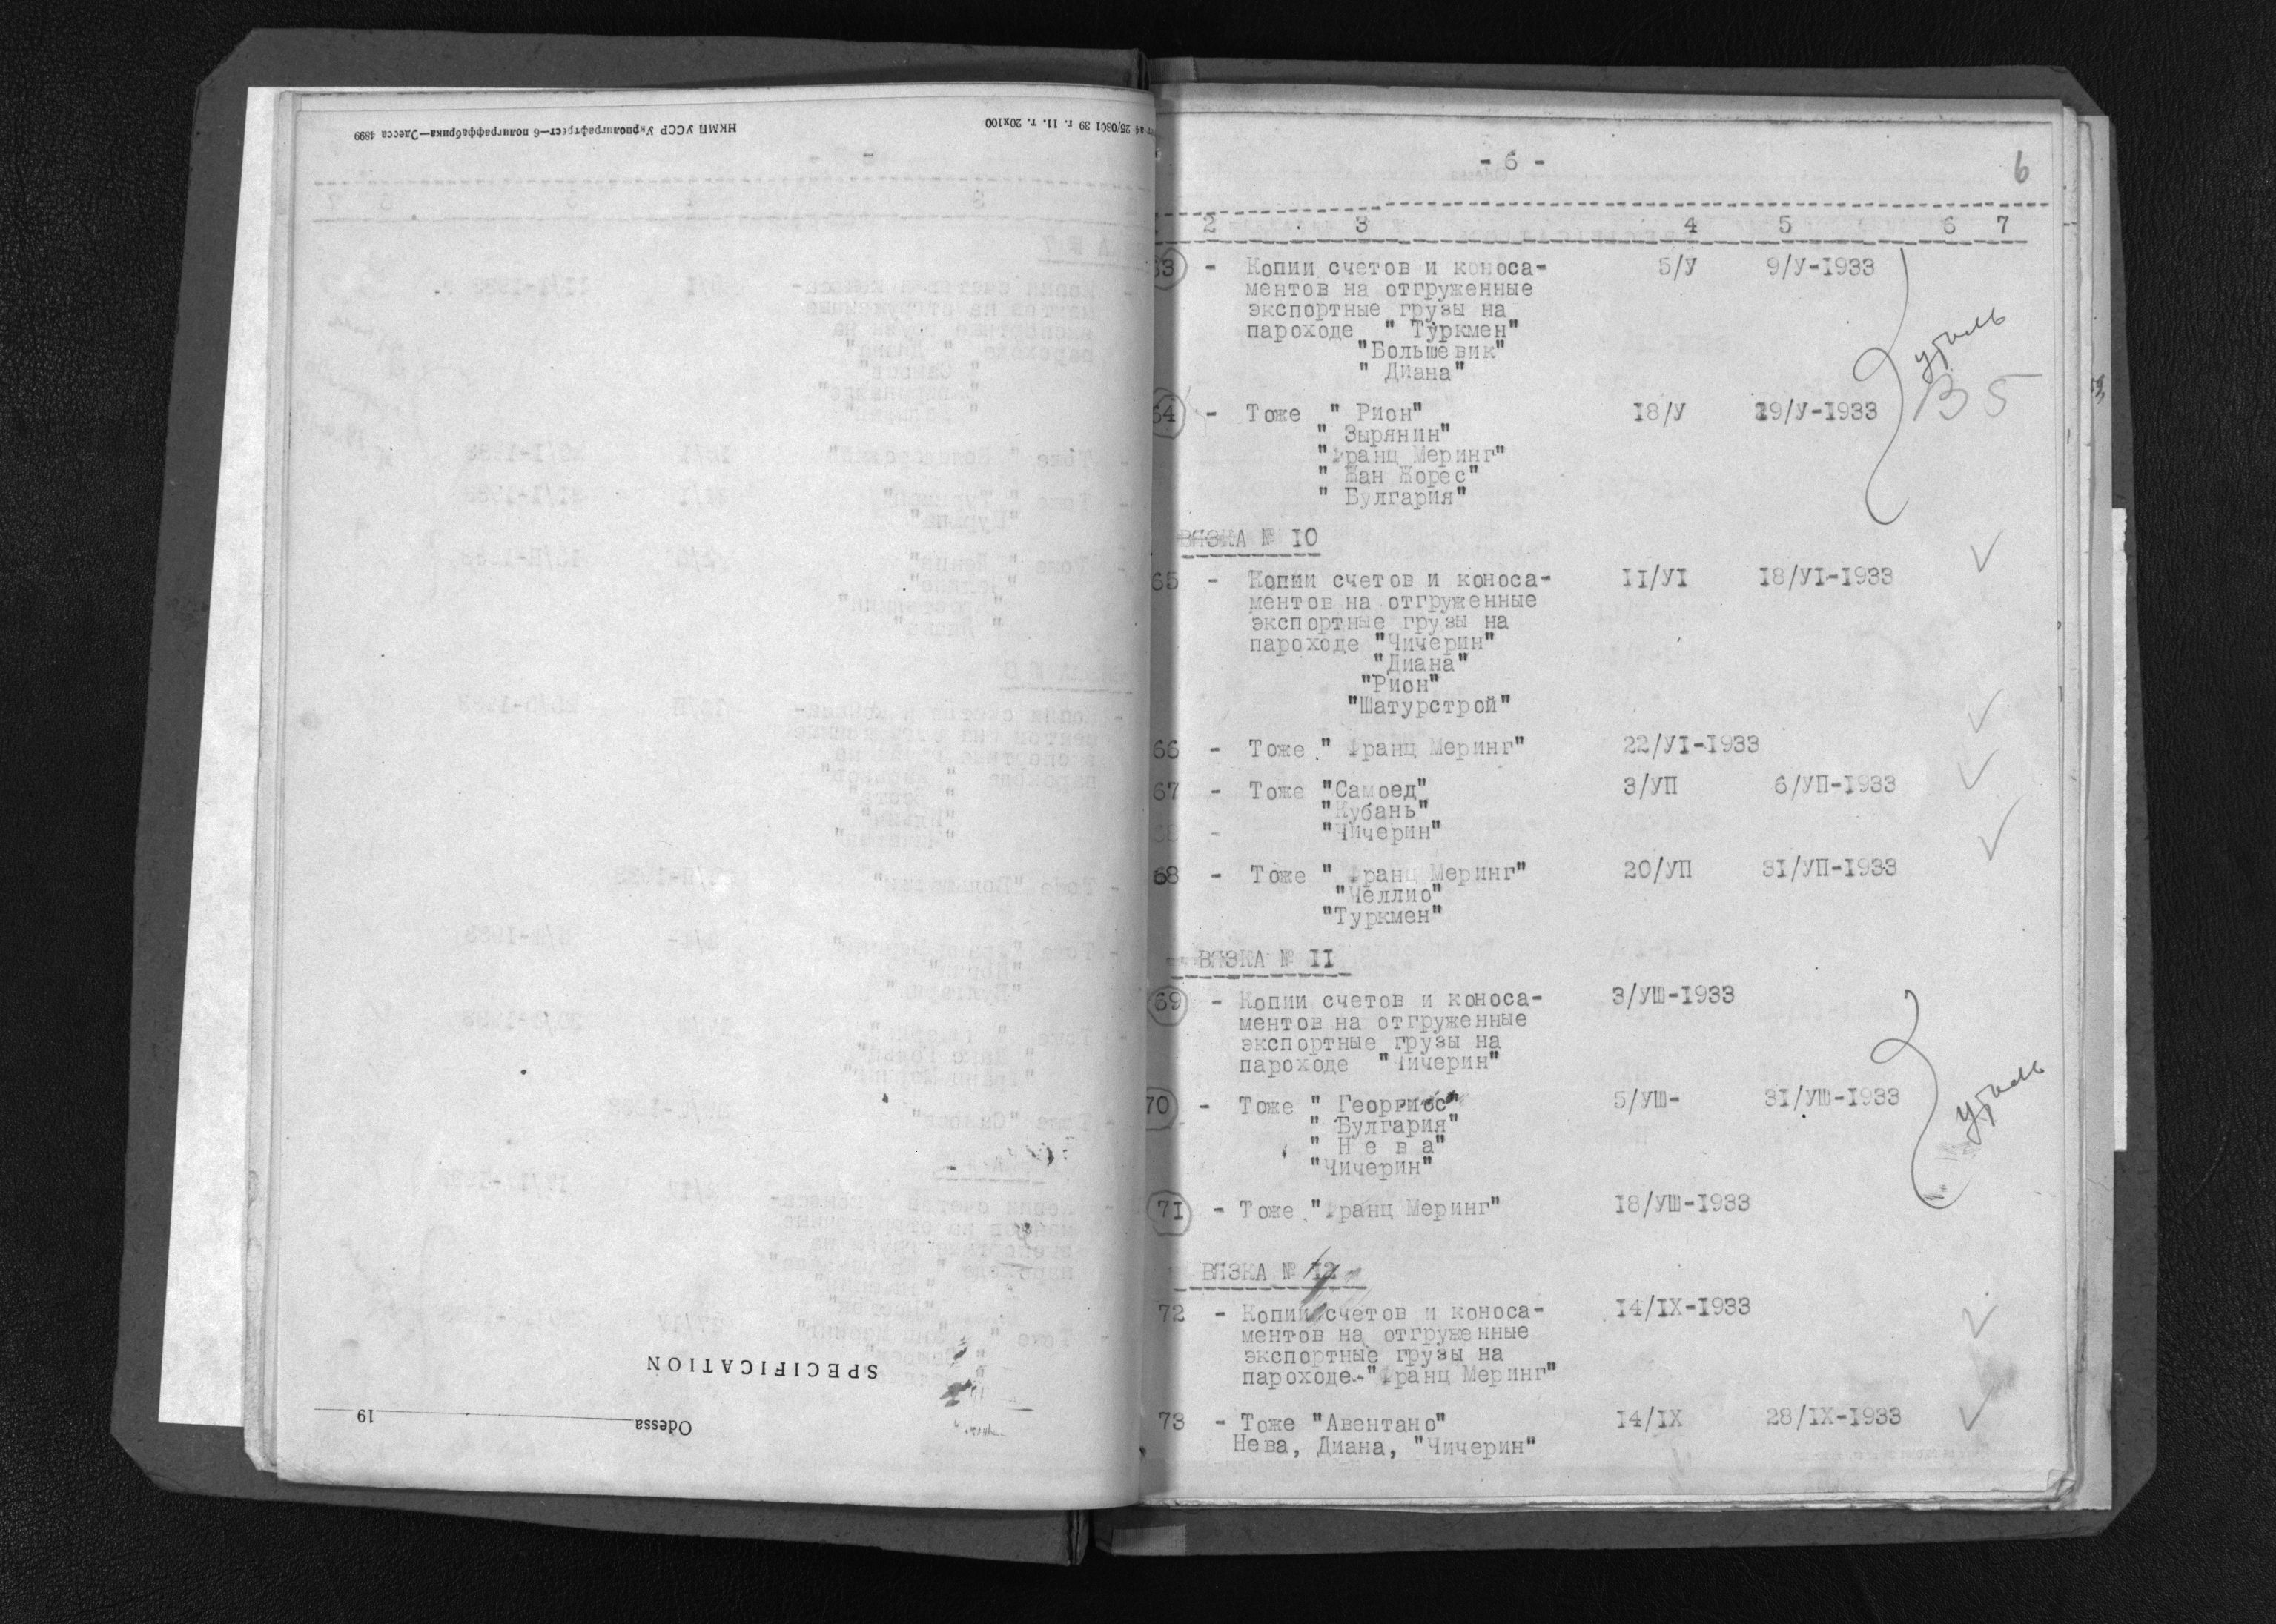 НКМП УССР Укрполиграфтрест—6 полиграффабрика—Одесса 4899
25/0301 39 г. 11. т. 20х100
SPECIFICATION
Odessa 19
- 6 -
6
2 3 4 5 6 7
63 - Копии счетов и коноса- 5/У 9/У-1933
ментов на отгруженные
экспортные грузы на
пароходе " Туркмен"
"Большевик"
" Диана"
утиль
35
64 - Тоже " Рион" 18/У 19/У-1933
" Зырянин"
"Франц Меринг"
" Жан Жорес"
" Булгария"
ВЯЗКА № 10
65 - Копии счетов и коноса- II/УI 18/УI-1933
ментов на отгруженные
экспортные грузы на
пароходе "Чичерин"
"Диана"
"Рион"
"Шатурстрой"
66 - Тоже " Франц Меринг" 22/УI-1933
67 - Тоже "Самоед" 3/УП 6/УП-1933
"Кубань"
68 - "Чичерин"
68 - Тоже " Франц Меринг" 20/УП 31/УП-1933
"Челлио"
"Туркмен"
ВЯЗКА № II
69 - Копии счетов и коноса- 3/УШ-1933
ментов на отгруженные
экспортные грузы на
пароходе "Чичерин"
70 - Тоже " Георгиос" 5/УШ- 31/УШ-1933
" Булгария"
" Н е в а"
"Чичерин"
утиль
71 - Тоже "Франц Меринг" 18/УШ-1933
ВЯЗКА № 12
72 - Копии счетов и коноса- 14/IX-1933
ментов на отгруженные
экспортные грузы на
пароходе-"Франц Меринг"
73 - Тоже "Авентано" 14/IX 28/IX-1933
Нева, Диана, "Чичерин"